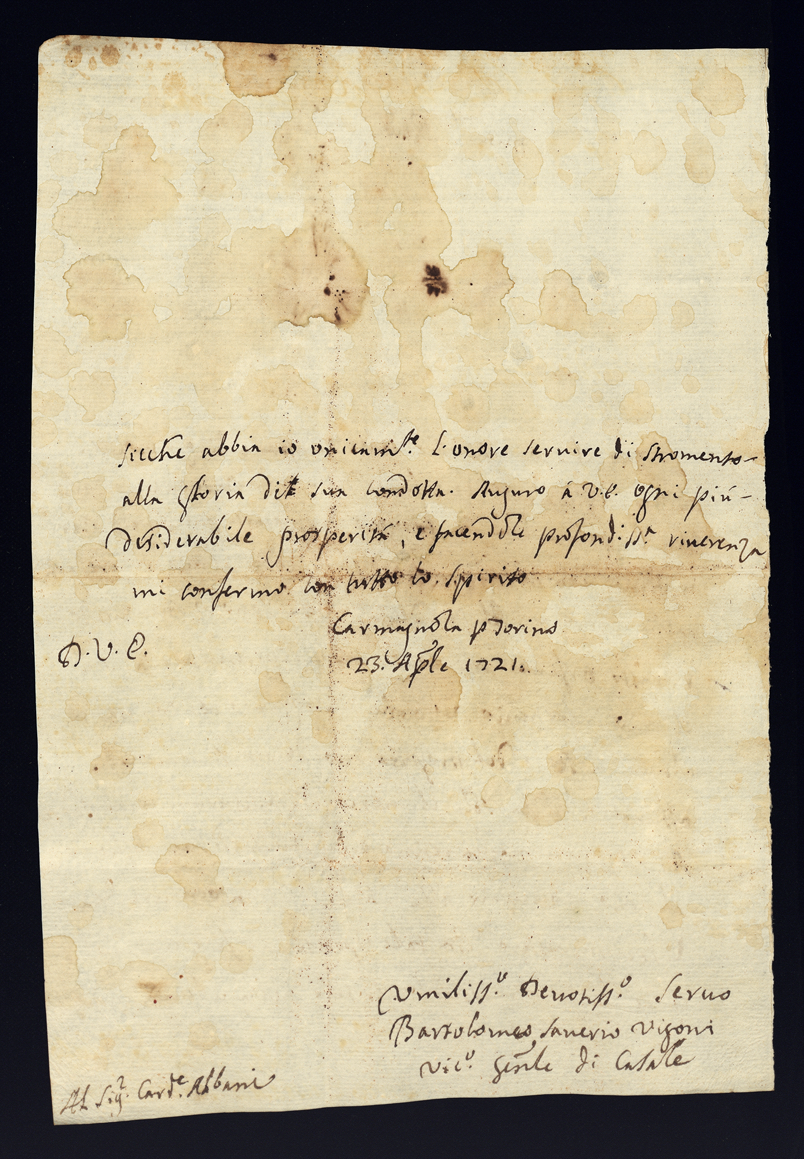 sicche abbia io unicam.te l'onore servire di stromento
alla gloria di sua condotta. Auguro à V.E. ogni più
desiderabile prosperità, e facendole profondiss.a riverenza
mi confermo con tutto lo spirito
Carmagnola p Torino
D. V. E.
23. Aple 1721.
Umiliss.o Devotiss.o Servo
Bartolomeo Saverio Vigoni
Vic.o Genle di Casale
Al Sig.r Card.e Albani